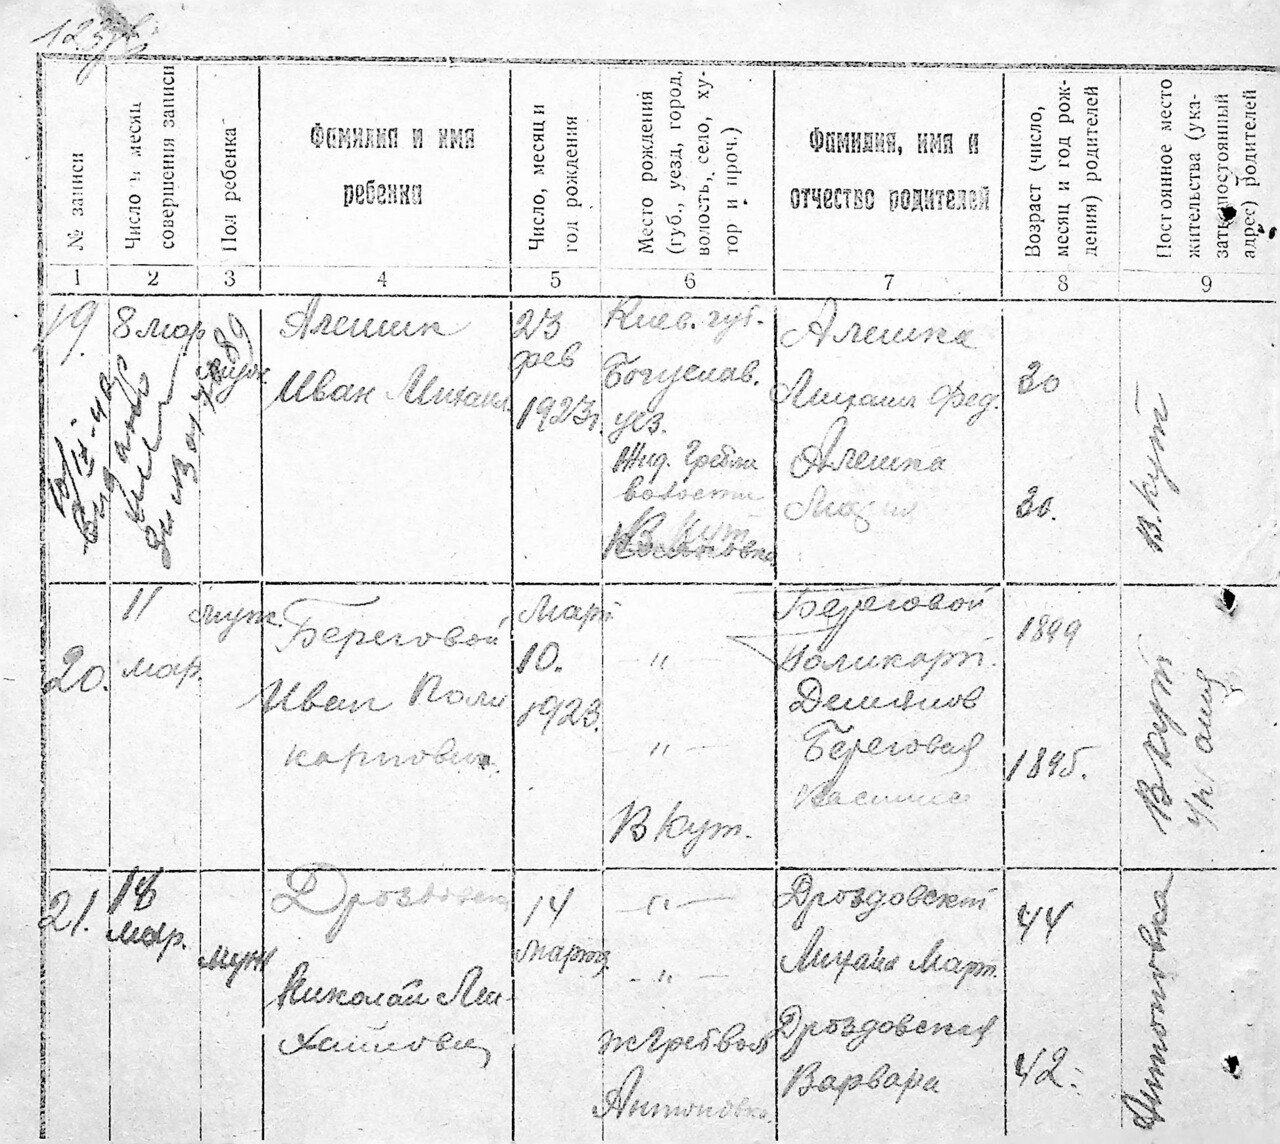 № записи
Число и месяц
совершения записи
Пол ребенка
Фамилия и имя
ребенка
Число, месяц и
год рождения
Место рождения
(губ., уезд, город,
волость, село, ху-
тор и проч.)
Фамилия, имя и
отчество родителей
Возраст (число,
месяц и год рож-
дения) родителей
Постоянное место
жительства (ука-
зать постоянный
адрес) родителей
1 2 3 4 5 6 7 8 9
19.
8 мар
муж
Алешик
Иван Михаил
23
фев
1923г.
Киев. губ.
Богуслав.
уез.
Жид. Гребли
волости
В Кут
Алешка
Михаил Фед.
Алешка
30
30.
В. Кут
20.
11
мар.
муж.
Береговой
Иван Поли
карпович.
Март
10.
1923.
— " —
— " —
В Кут.
Береговой
Поликарп.
Демянов
Береговая
1899
1895.
В Кут
21.
18
мар.
муж
Николай Ми-
хайлович
14
марта
— " —
— " —
Антоновка
Дроздовский
Михаил Март.
Дроздовская
Варвара
44
42.
Антоновка